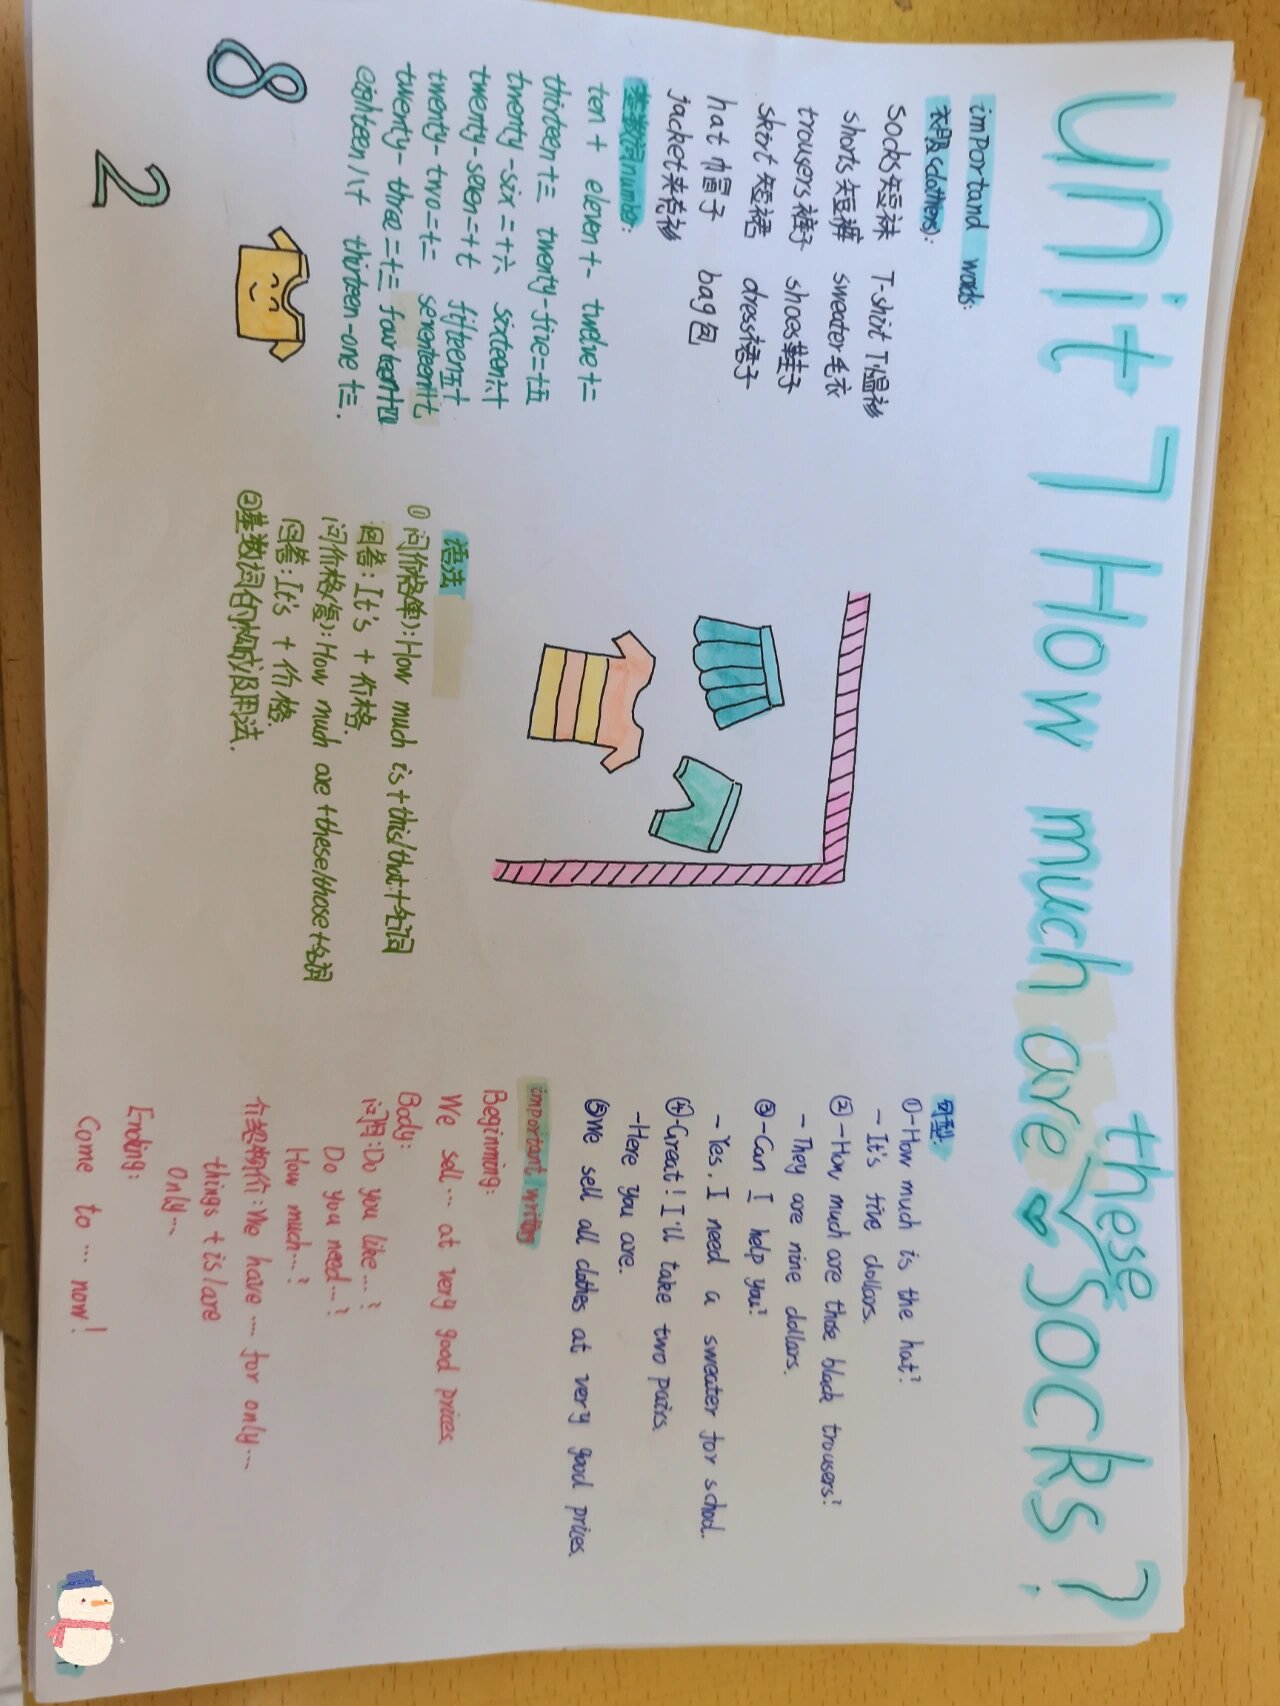 Unit 7 How much are these Socks?
importand words:
衣服(clothers):
Socks短袜 T-shirt T恤衫
shorts短裤 sweater毛衣
trousers裤子 shoes鞋子
skirt短裙 dress裙子
hat帽子 bag包
jacket夹克衫
基数词number:
ten + eleven+- twelve十二
thirteen十三 twenty-five=十五
twenty-six=十六 sixteen六十
twenty-seven=十七 fifteen五十
twenty-two=十二 seventeen十七
twenty-three=十三 fourteen十四
eighteen八十 thirteen-one十三.
8
2
语法
①问价格(单):How much is+this/that+名词
回答:It's + 价格.
问价格(复):How much are+these/those+名词
回答:It's + 价格.
②基数词的构成及用法.
句型:
①-How much is the hat?
-It's five dollars.
②-How much are those black trousers?
-They are nine dollars.
③-Can I help you?
-Yes. I need a sweater for school.
④-Great! I'll take two pairs.
-Here you are.
⑤We sell all clothes at very good prices.
important writing
Beginning:
We sell… at very good prices.
Body:
问:Do you like…?
Do you need…?
How much…?
介绍物价:We have … for only…
things + is/are
only…
Ending:
Come to … now!